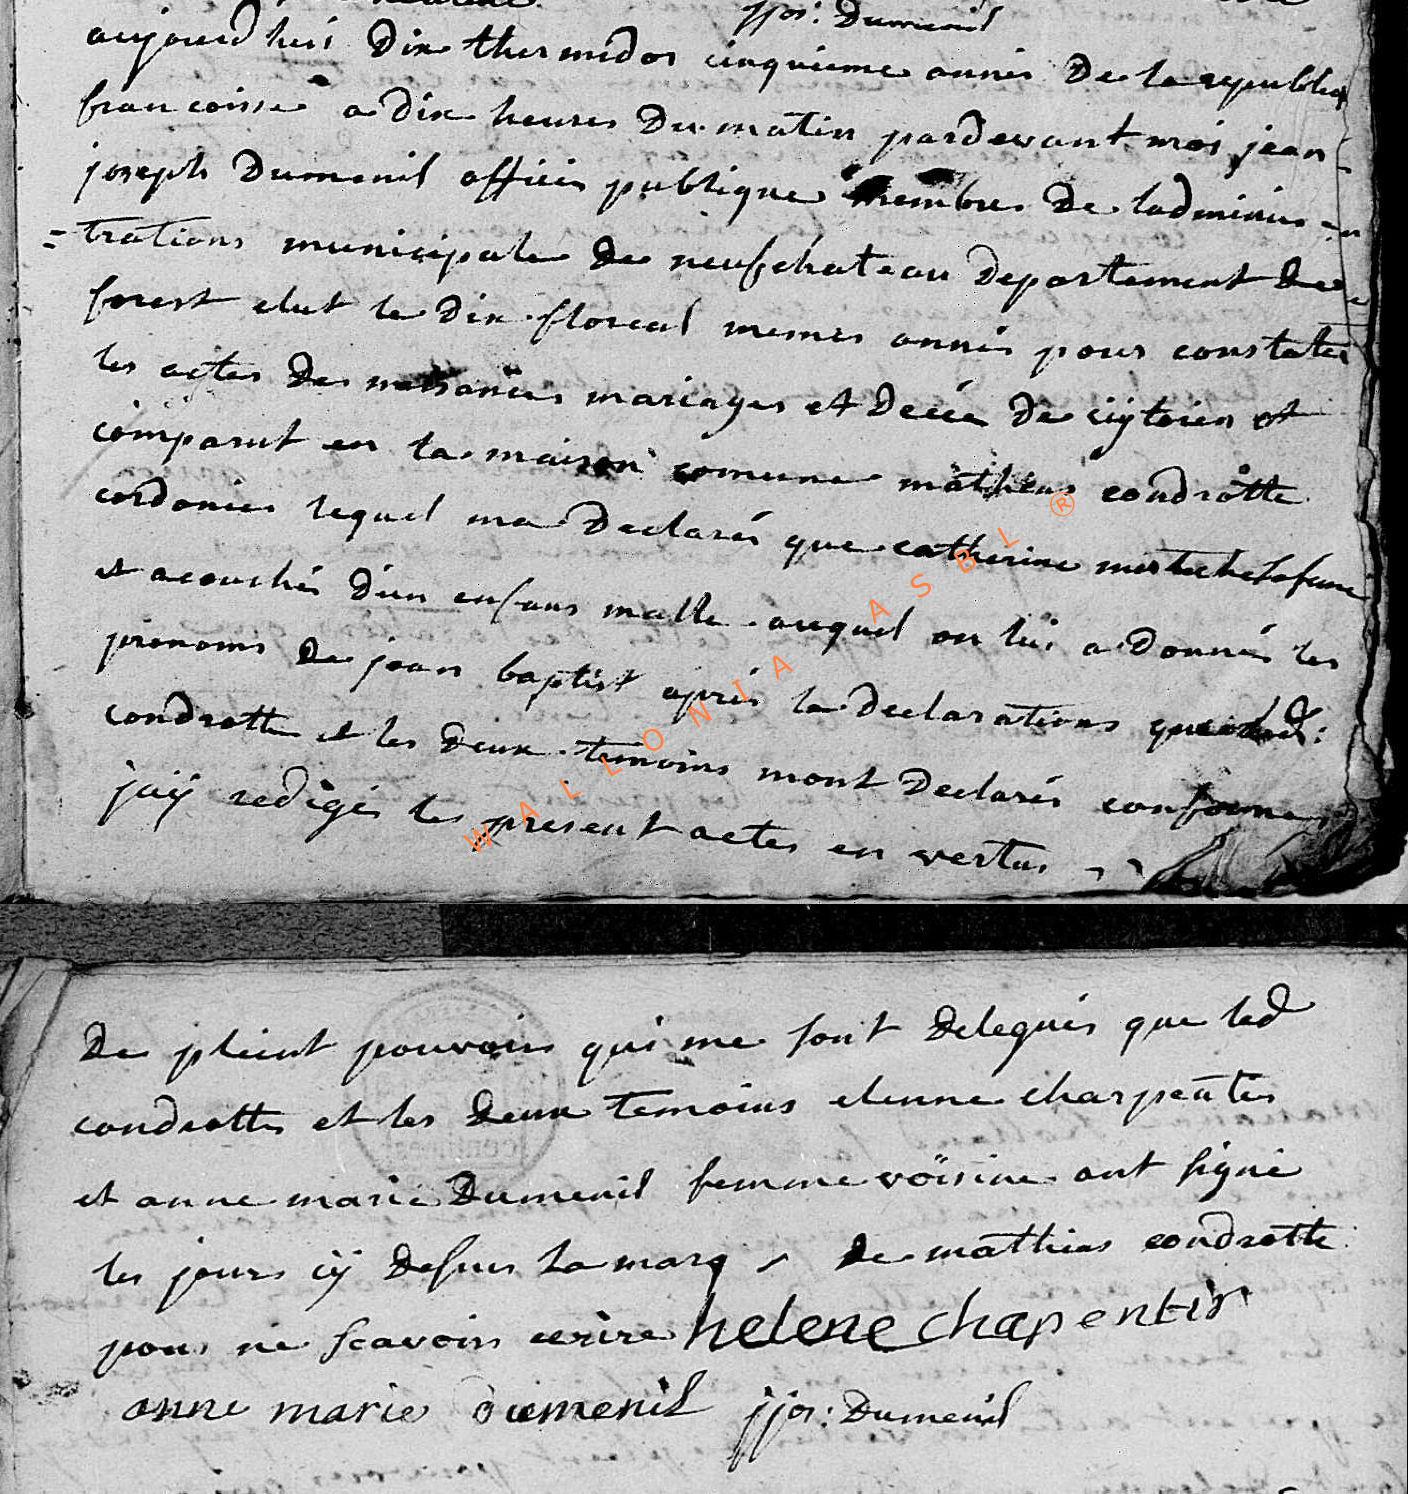 jjos: Dumenil
aujourd'huis Dix thermidor cinquieme anneé De la republiq
francoisse a dix heures Du matin pardevant moi jean
joseph Dumenil officier publique membre De ladminis
= trations municipale De neufchateau Departement De
forest elut le dix floreal memes anneé pour constater
les actes De naissances mariages et Decée De ciytoien et
comparut en la maison comune mathieus condrotte
cordonier lequel ma Declareé que catherine sa fame
et acouchée d'un enfans malle auquel on lui a donneé les
prenoms De jean baptist apreé la Declarations que led:
condrotte et les Deux temoins mont Declareé conforme
jaÿ redigé les present actes en vertus
De pleint pouvoirs qui me sont deleguéé que led
condrotte et les Deux temoins elenne charpentier
et anne marie Dumenil femme voïsine ont signé
les jours cÿ desus La marq de mathieus condrotte
pour ne scavoir ecrire helene chapentir
anne marie dumenil jjos: Dumenil
WALLONIA ASBL ®